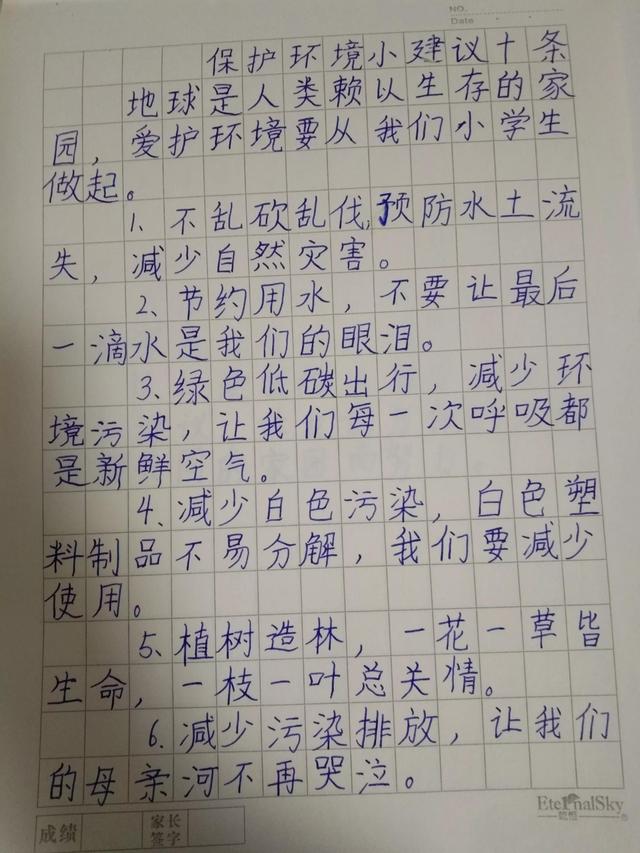 NO.
Date
保护环境小建议十条
地球是人类赖以生存的家
园，爱护环境要从我们小学生
做起。
1、不乱砍乱伐,预防水土流
失，减少自然灾害。
2、节约用水，不要让最后
一滴水是我们的眼泪。
3、绿色低碳出行，减少环
境污染，让我们每一次呼吸都
是新鲜空气。
4、减少白色污染，白色塑
料制品不易分解，我们要减少
使用。
5、植树造林，一花一草皆
生命，一枝一叶总关情。
6、减少污染排放，让我们
的母亲河不再哭泣。
成绩 家长签字
EternalSky